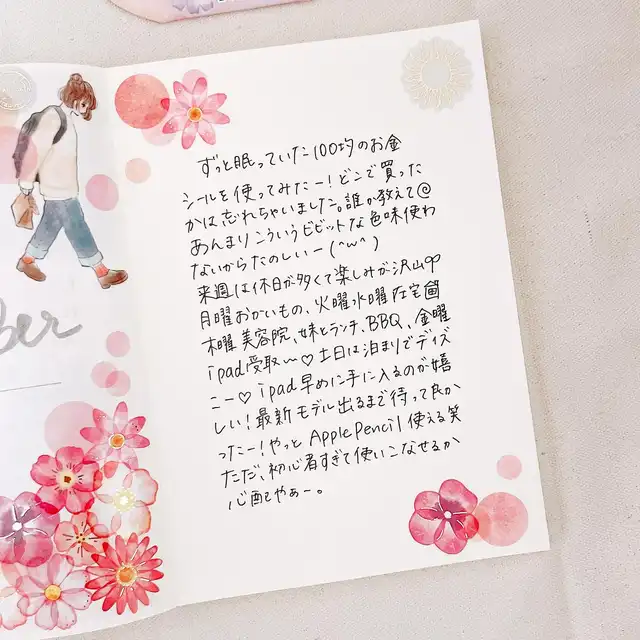 ber
ずっと眠っていた100均のお金
シールを使ってみたー！どこで買った
かは忘れちゃいました。誰か教えて@
あんまりこういうビビットな色味使わ
ないからたのしいー(^w^)
来週は休日が多くて楽しみが沢山
月曜おかいもの、火曜水曜在宅
木曜美容院、妹とランチ、BBQ、金曜
ipad受取〜♡土日は泊まりでディズ
ニー♡ipad早めに手に入るのが嬉
しい！最新モデル出るまで待って良か
ったー！やっとApplePencil使える笑
ただ、初心者すぎて使いこなせるか
心配やぁー。